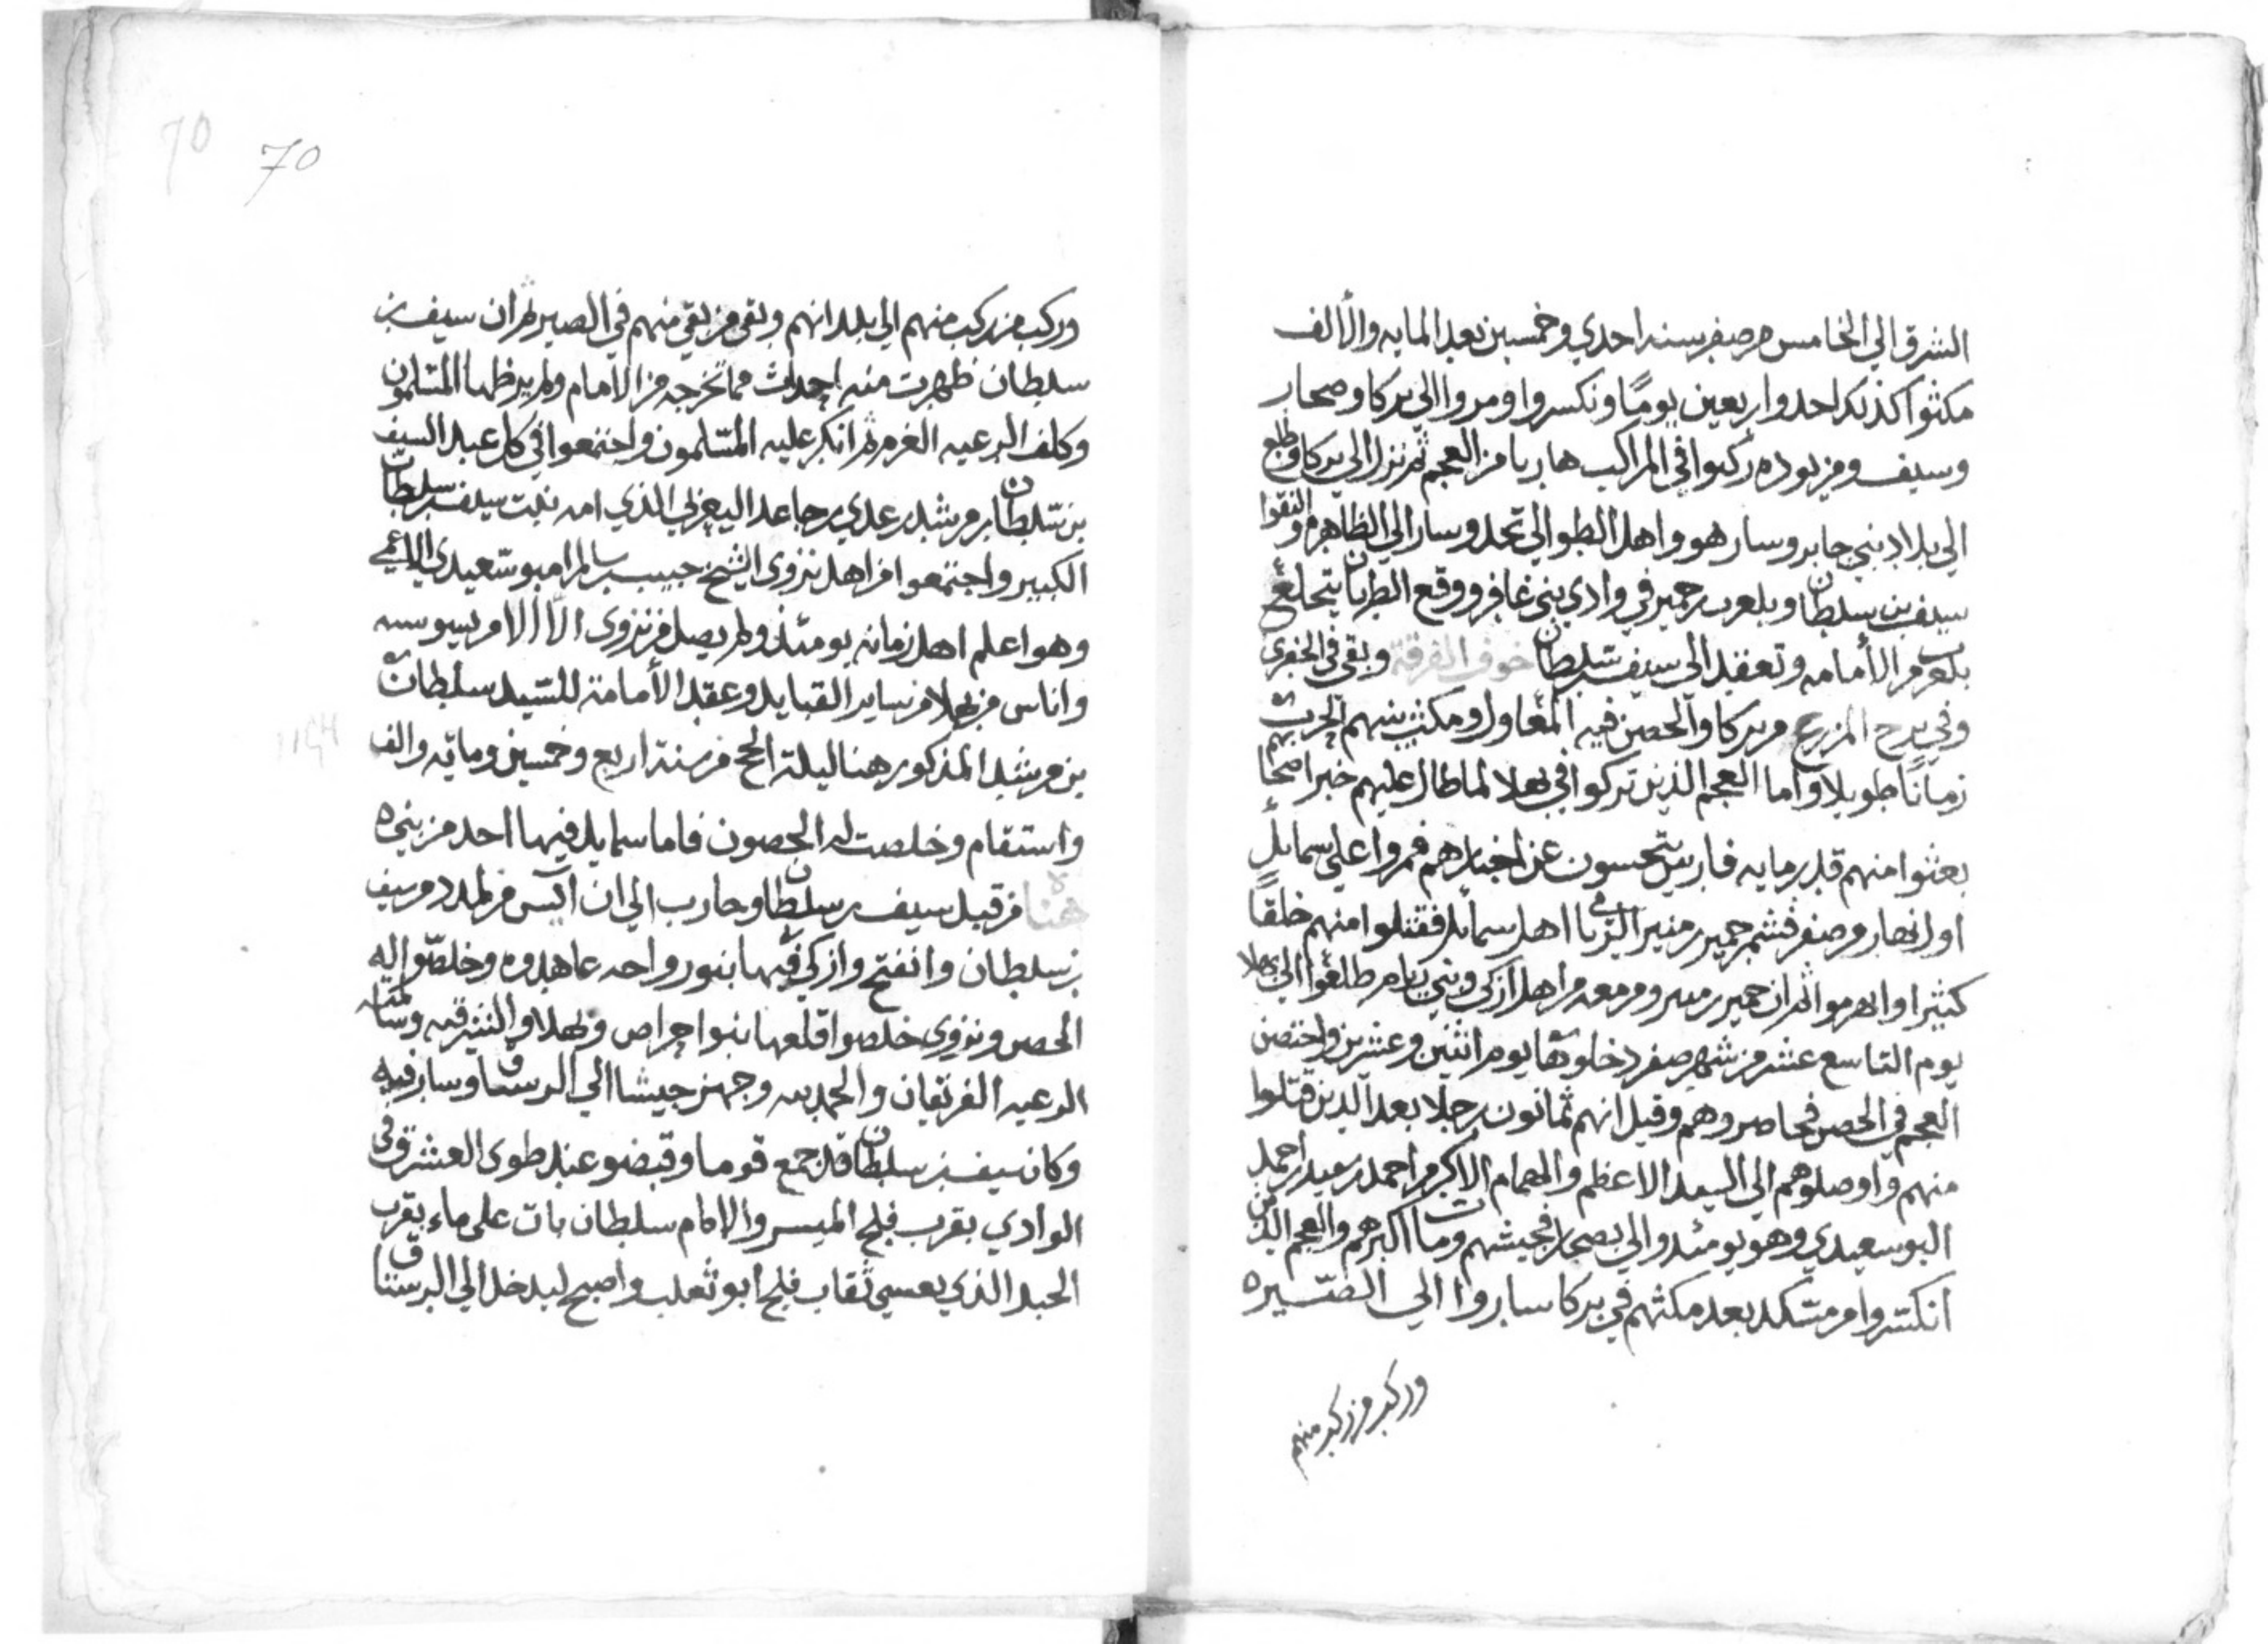 الشرق الي الخامس من صفر سنه احدي وخمسين بعد المايه والألف
مكثوا كذلك احد واربعين يومًا ونكسروا ومروا الي بركا وصحار
وسيف ومن بوده ركبوا في المراكب هاربا من العجم ثم نزل الي بركا وطلع
الي بلاد بني جابر وسار هو واهل الطو الي نخل وسار الي الظاهره والتقوا
سيف بن سلطان وبلعرب بن حمير في وادي بني غافر ووقع الطربان يتخلع
بلعرب من الأمامه وتعقد الي سيف بن سلطان خوف الفرقة وبقي في الحفري
وفي برج المزرع من بركا والحصن فيه المعاول ومكثت بينهم الحرب
زمانًا طويلا واما العجم الذين تركوا في بهلا لما طال عليهم خبر اصحابهم
بعثوا منهم قدر مايه فارس يتحسون عن اخبارهم فمروا علي سمائل
اول نهار من صفر فثم حمير بن منير الريامي اهل سمائل فقتلوا منهم خلقًا
كثيرا وانهزموا ثم ان حمير بن منير ومن معه من اهل ازكي وبني ريام طلعوا الي بهلا
يوم التاسع عشر من شهر صفر دخلوها يوم اثنين وعشرين واختصن
العجم في الحصن فحاصروهم وقيل انهم ثمانون رجلا بعد الذين قتلوا
منهم واوصلوهم الي السيد الاعظم والهمام الاكرم احمد بن سعيد بن احمد
البوسعيدي وهو يومئذ والي بصحار فحبسهم ومات اكبرهم والعجم الذين
انكسروا من مسكد بعد مكثهم في بركا ساروا الي الصّيره
وركب من ركب منهم
70 70
وركب من ركب منهم الي بلدانهم وبقي من بقي منهم في الصير ثم ان سيف بن
سلطان ظهرت منه احداث مما تخرجه من الامام ولم يرضها المسلمون
وكلف الرعيه الغرم ثم انكر عليه المسلمون واجتمعوا في كل عبد السيف
بن سلطان بن مرشد بن عدي بن جاعد اليعربي الذي امه بنت سيف بن سلطان
الكبير واجتمعوا من اهل نزوى الشيخ حبيب بن سالم امبوسعيدي الاعمي
وهو اعلم اهل زمانه يومئذ ولم يصل من نزوى الا الامر يسير
واناس من بهلا من ساير القبايل وعقد الأمامة للسّيد سلطان
بن مرشد المذكور هنا ليلة الحج من سنة اربع وخمسين ومايه والف
واستقام وخلصت له الحصون فاما سمايل فيها احد من بني
هناه من قبل سيف بن سلطان وحارب الي ان آيس من لمدد من سيف
بن سلطان وانفتح وازكي فيها بنو رواحه عاهدوه وخلصّوا له
الحصن ونزوى خلصوا قلعها بنوا حراص وبهلا والشرقيه وسالمته
الرعيه الفريقان والحمد لله وجهز جيشا الي الرستاق وسار فيه
وكان سيف بن سلطان قد جمع قوما وقبضو عند طوى العشرق في
الوادي بقرب فلج الميسر والامام سلطان بات على ماء بقرب
الحبد الذي يعسي ثقاب فلج ابو ثعلب واصبح ليدخل الي الرستاق